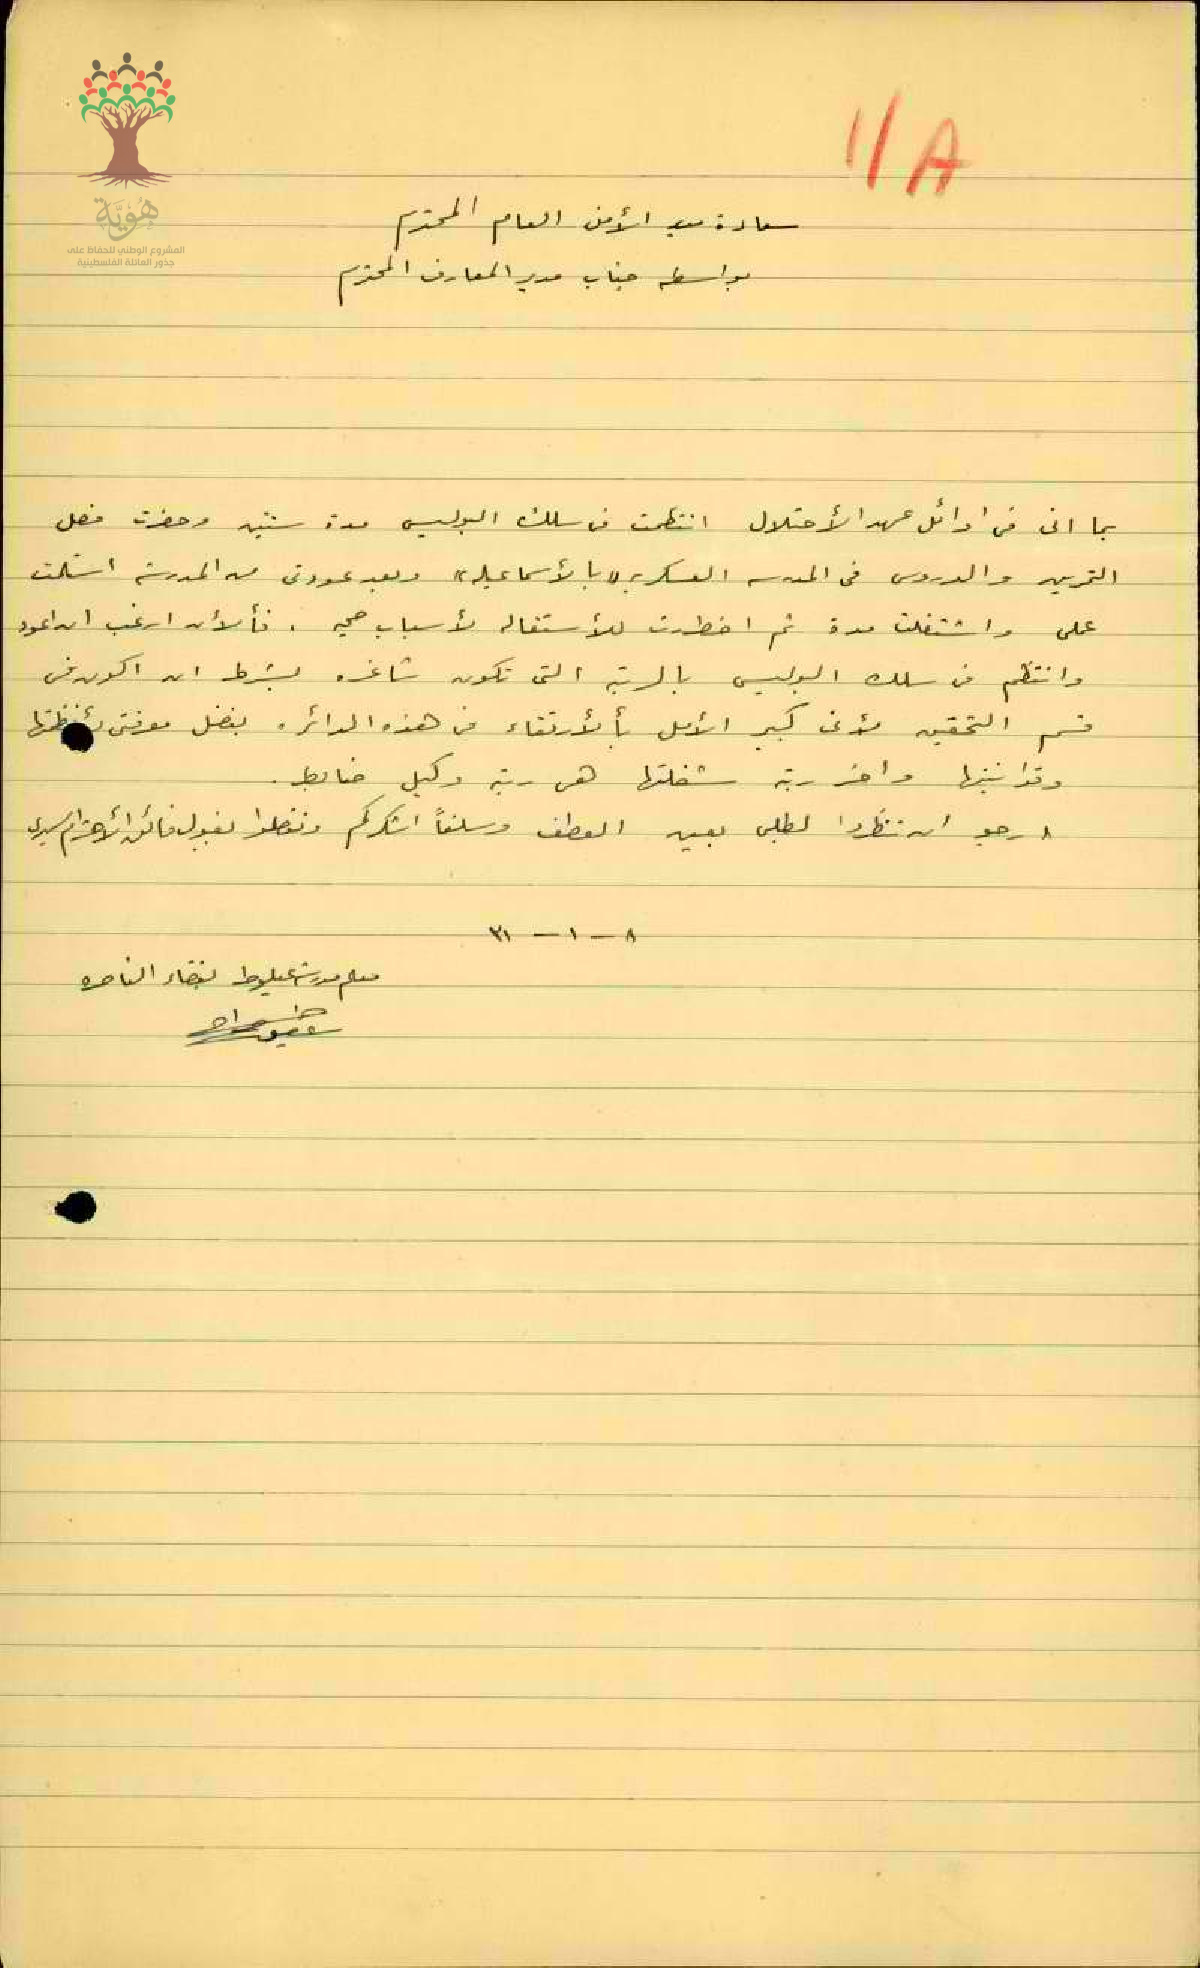 11/A
هُوِيَّة
المشروع الوطني للحفاظ على
جذور العائلة الفلسطينية
سعادة مدير الأمن العام المحترم
بواسطة جناب مدير المعارف المحترم
بما انى فى اوائل عهد الأحتلال انتظمت فى سلك البوليس مدة سنتين وحضرت فصل
التمرين والدروس فى المدرسه العسكريه «بالأسماعيليه» وبعد عودتى من المدرسة استلمت
على واشتغلت مدة ثم اضطررت للأستقاله لأسباب صحيه . فألأن ارغب ان اعود
وانتظم فى سلك البوليس بالرتبه التى تكون شاغره بشرط ان اكون فى
قسم التحقيق لأنى كبير الأمل بألأرتقاء فى هذه الدائره بفضل معرفتى بأنظمتها
وقوانينها واخر رتبه شغلتها هى رتبة وكيل ضابط .
ارجو ان تنظروا لطلبى بعين العطف وسلفاً اشكركم وتفضلوا بقبول فائق الأحترام سيدى
٨ – ١ – ٣١
معلم مدرسة عيلوط بقضاء الناصره